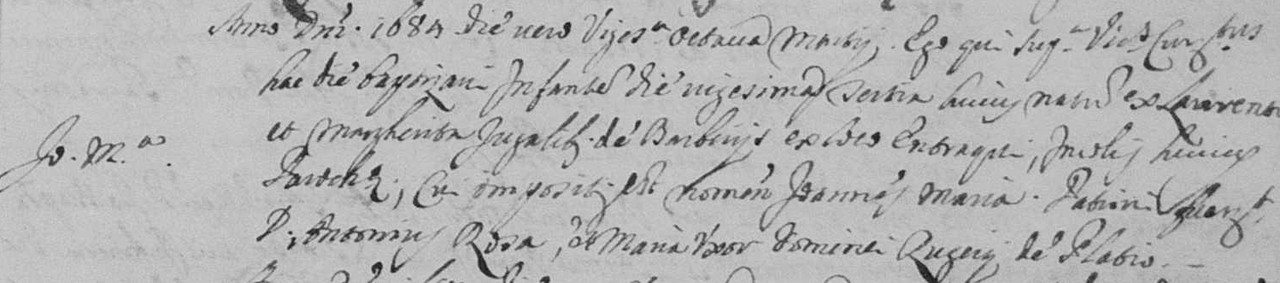 Anno Dni. 1684 die vero Viges.a octava Martij. Ego qui sup.a Vic.s Cur.tus
hac die baptizavi Infante die vigesima tertia huius natu ex Laurent
et Margherita Jugalib. de Barberijs ex loco Entraqui, Incolis huius
Jo. M.a
Parochę, Cui imposit. est nomen Joannes Maria. Patrini fuerut
D. Antonius Rosa, et Maria Uxor Dominici Rugerij de Flabio.